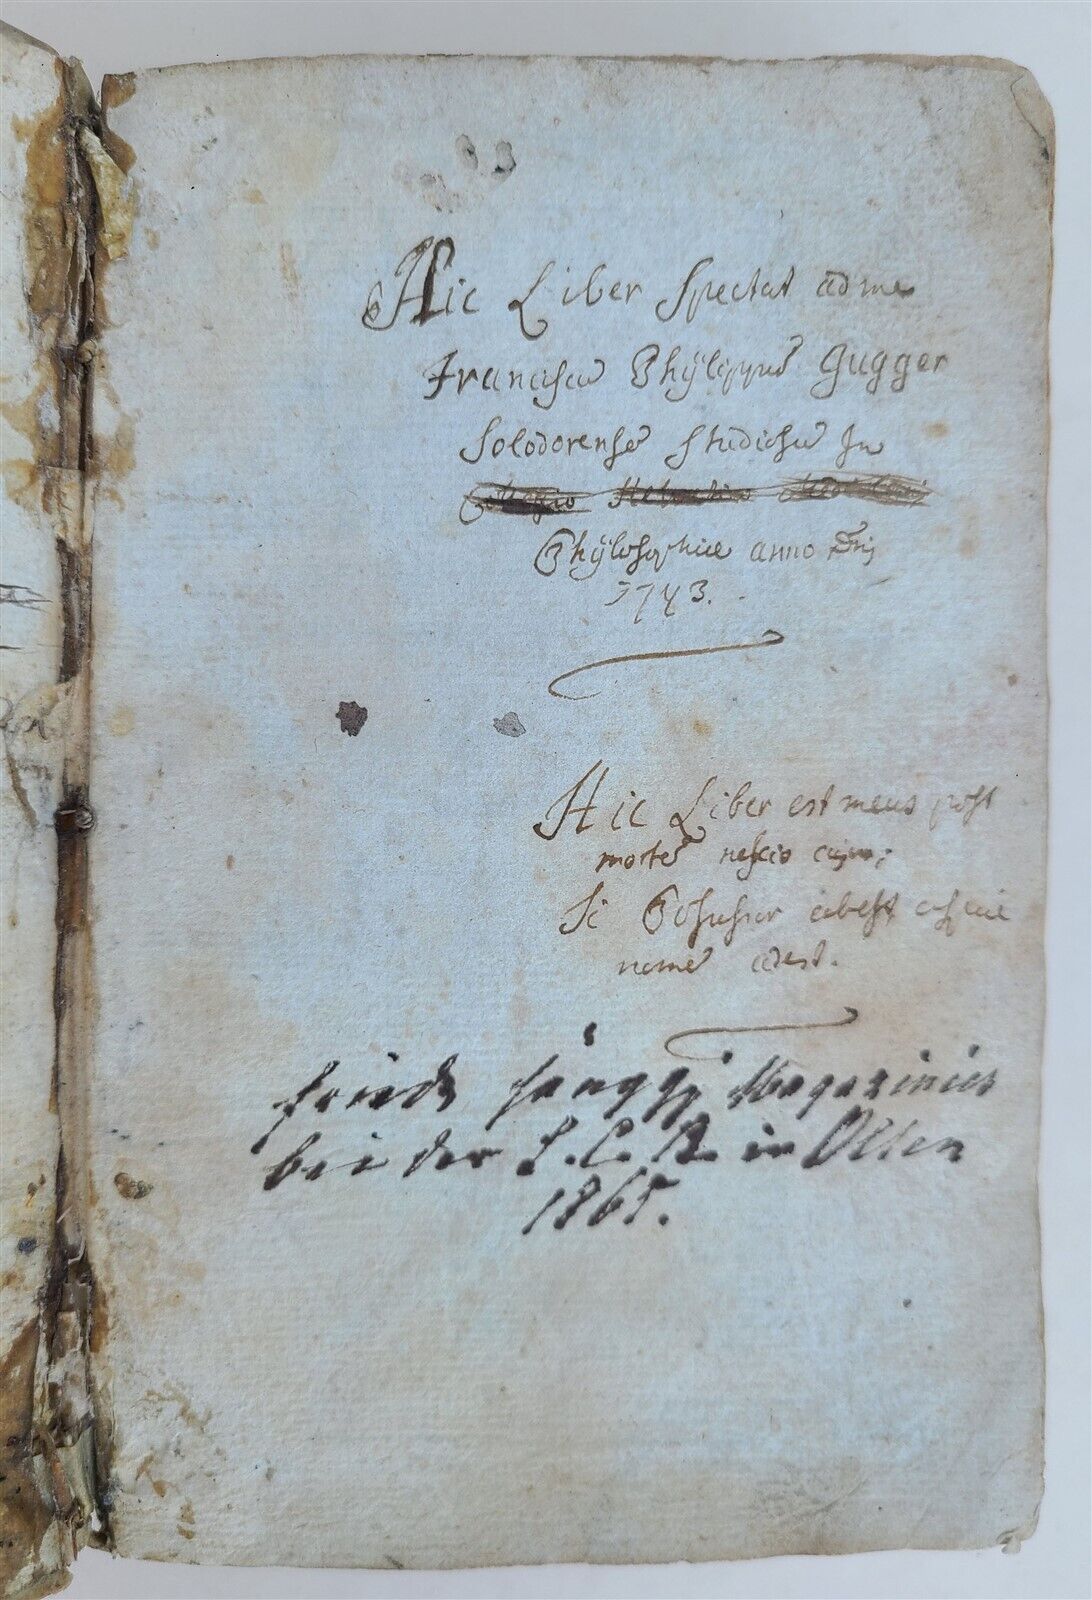 Hic Liber Spectat ad me
Franciscū Phÿlippūm Gugger
Solodorensem Studiosū In
Phÿlosophiae anno Dnj
1743.
Hic Liber est meus post
mortē nescio cujus;
Si Possessor abest usque
nomē adest.
Friedr Hänggi Magazinier
bei der S.C.B. in Olten
1865.